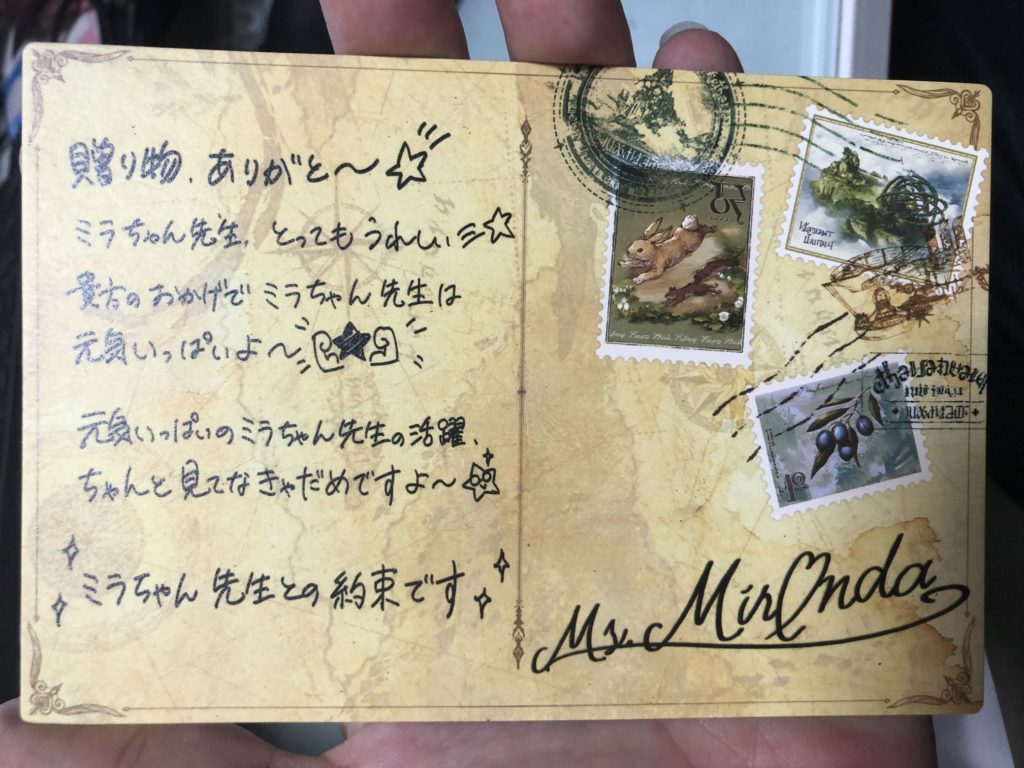 贈り物、ありがと〜☆
ミラちゃん先生、とってもうれしい☆
貴方のおかげでミラちゃん先生は
元気いっぱいよ〜
元気いっぱいのミラちゃん先生の活躍、
ちゃんと見てなきゃだめですよ〜
ミラちゃん先生との約束です
Ms. Miranda